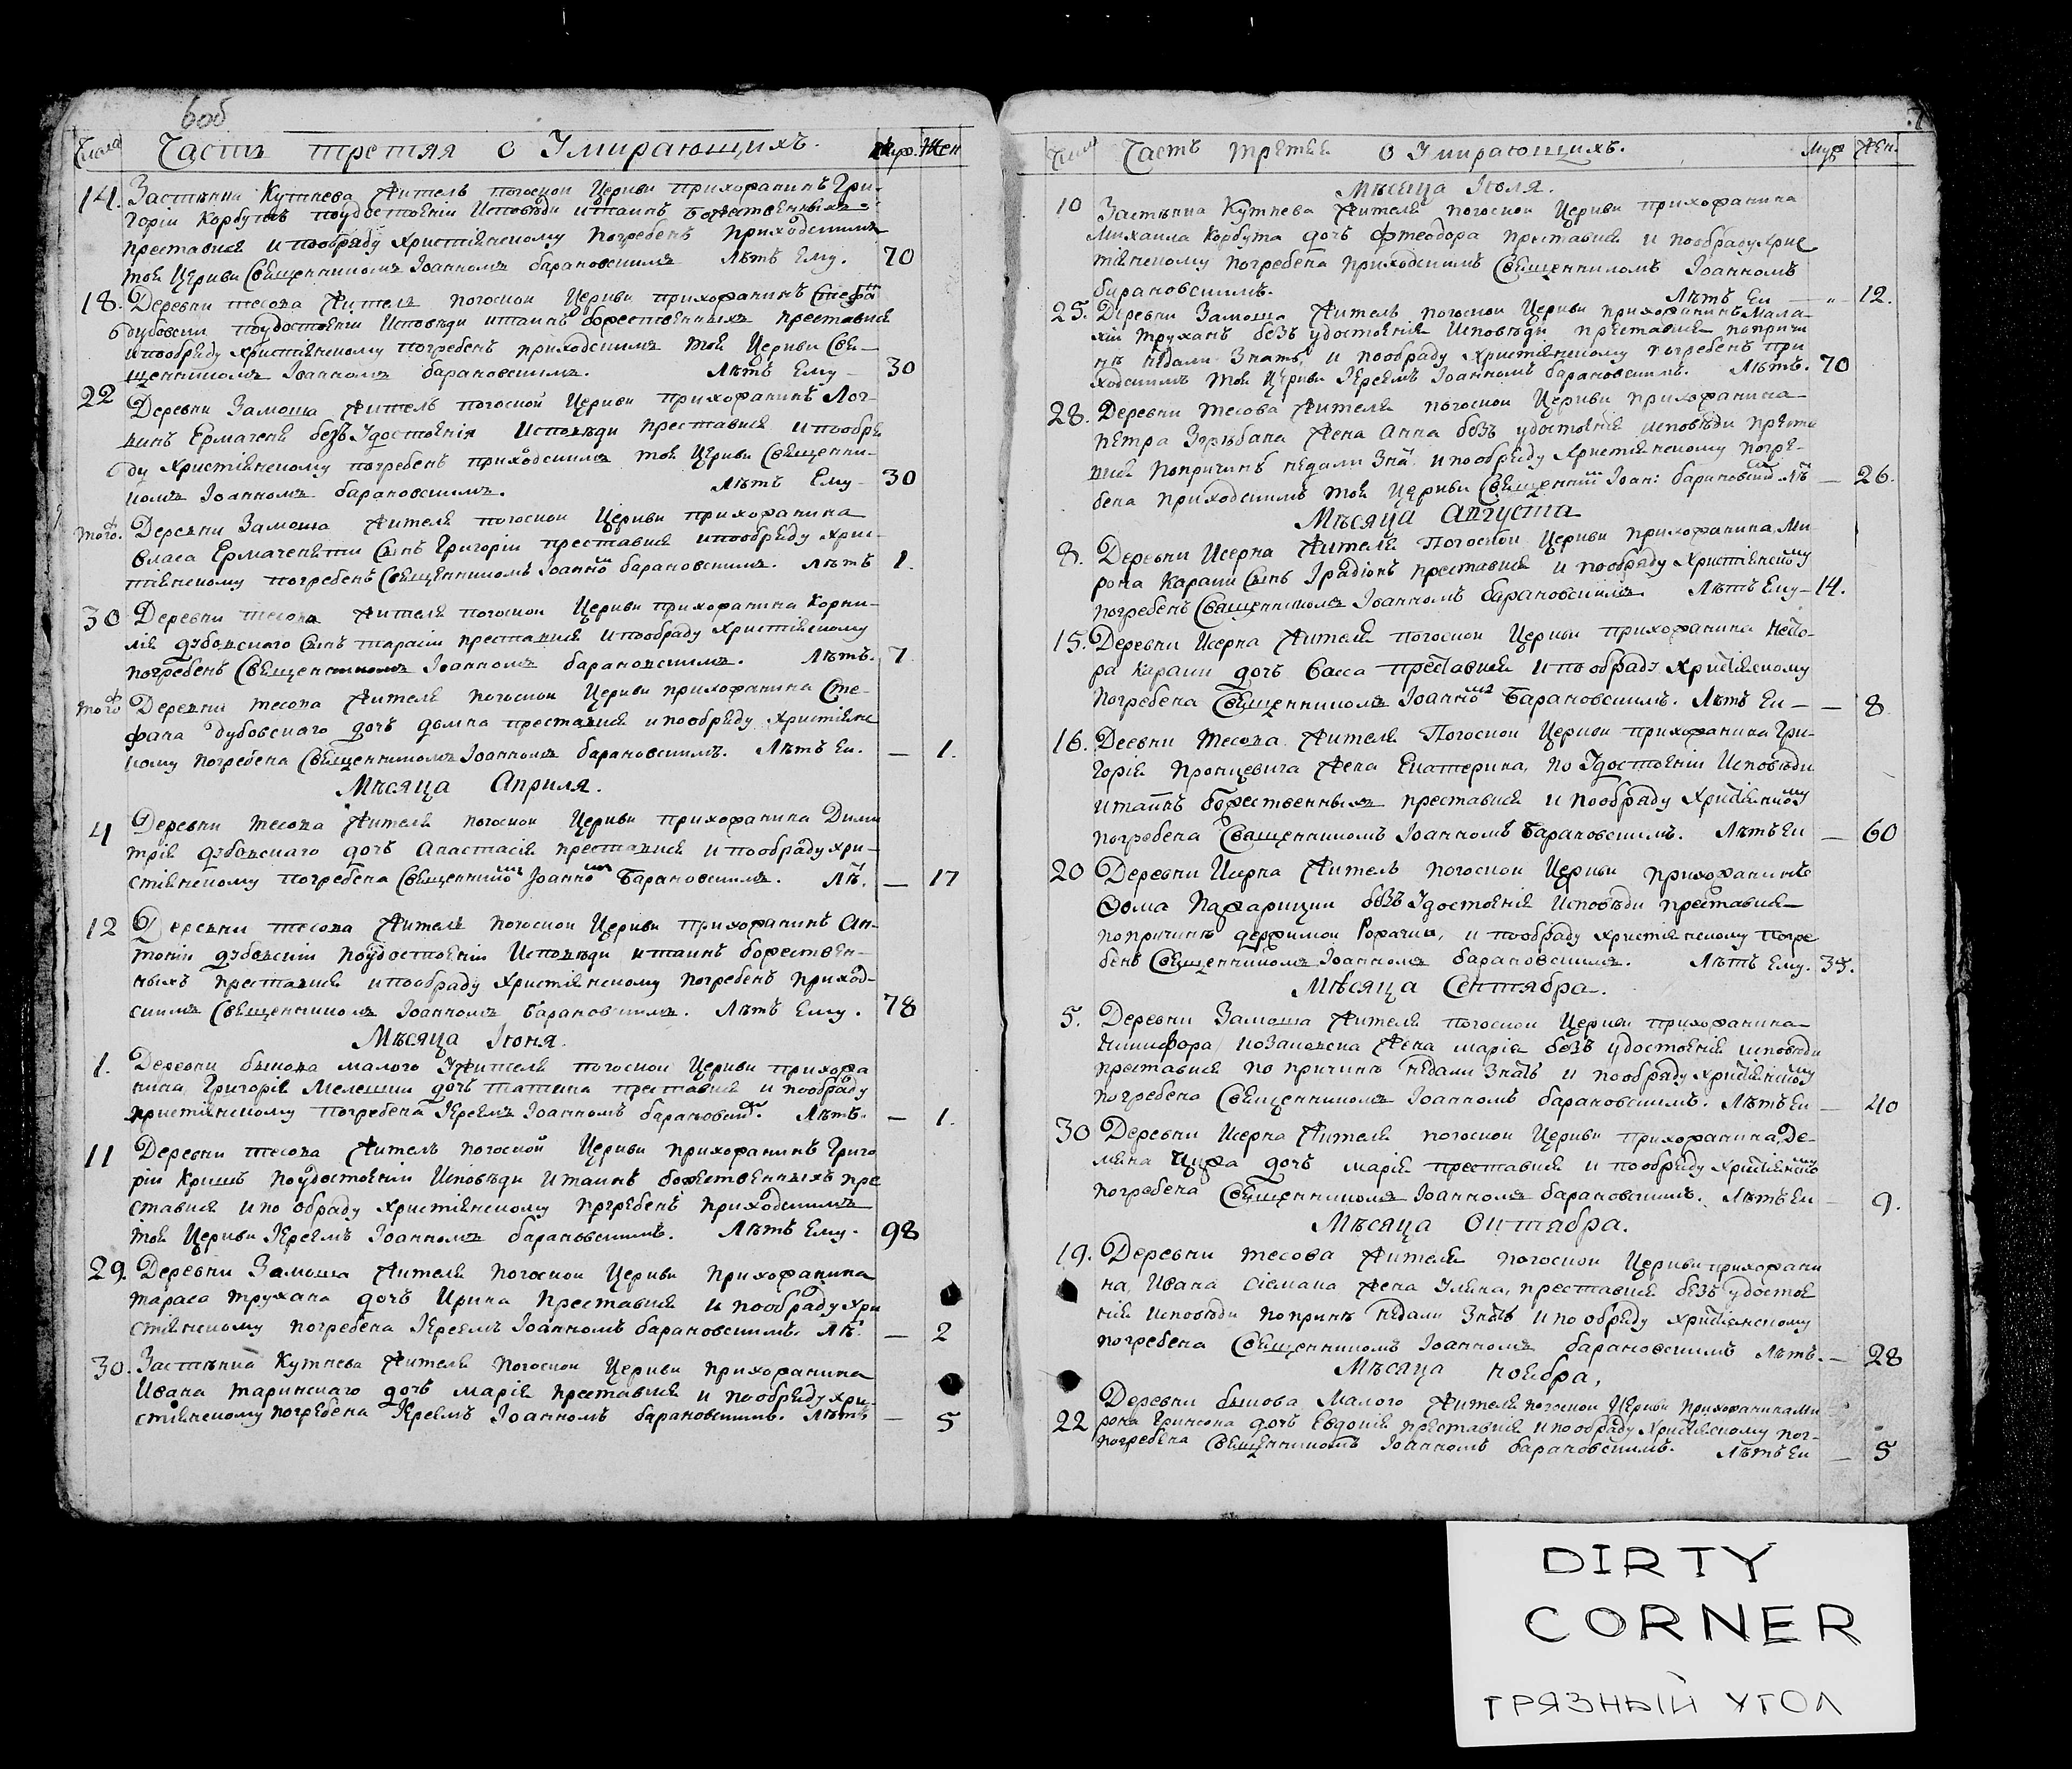 6об
Числа Часть третяя о Умирающихъ. Муж. Жен
14. Застѣнка Кутнева Житель погоской Церкви прихожанинъ Гри-
горій Корбутъ поудостоеніи Исповѣди итаинъ Божественныхъ
преставися ипообряду христіянскому погребенъ приходскимъ
той Церкви Священникомъ Іоанномъ барановскимъ Лѣтъ Ему. 70
18. Деревни тесова Житель погоской Церкви прихожанинъ Стефа
дубовски поудостоеніи Исповѣди итаинъ божественныхъ преставися
ипообряду христіянскому погребенъ приходскимъ той Церкви Свя-
щенникомъ Іоанномъ барановскимъ. Лѣтъ Ему 30
22 Деревни Замоша Житель погоской Церкви прихожанинъ Лог-
винъ Ермаченя безъ Удостоенія Исповѣди преставися ипообря
ду христіянскому погребенъ приходскимъ той Церкви Священни-
комъ Іоанномъ барановскимъ. Лѣтъ Ему 30
тогож. Деревни Замоша Жителя погоской Церкви прихожанина
Власа Ермаченяти Сынъ Григорій преставися ипообряду хрис-
тіянскому погребенъ Священникомъ Іоанномъ барановскимъ. Лѣтъ 1.
30 Деревни тесова Жителя погоской Церкви прихожанина Корни-
лія дубовскаго Сынъ тарасій преставися ипообряду христіянскому
погребенъ Священникомъ Іоанномъ барановскимъ. Лѣтъ. 7
тогож Деревни тесова Жителя погоской Церкви прихожанина Сте-
фана дубовскаго дочъ домна преставися ипообряду христіянс
кому погребена Священникомъ Іоанномъ барановскимъ. Лѣтъ Еи. — 1.
Мѣсяца Априля.
4 Деревни тесова Жителя погоской Церкви прихожанина Дими
трія дубовскаго дочъ Анастасія преставися ипообряду хри-
стіянскому погребена Священникомъ Іоанномъ Барановскимъ. Лѣ. — 17
12 Деревни тесова Житель погоской Церкви прихожанинъ Ан-
тоній дубовскіи поудостоеніи Исповѣди итаинъ божествен-
ныхъ преставися ипообряду христіянскому погребенъ приход-
скимъ Священникомъ Іоанномъ Барановскимъ. Лѣтъ Ему. 78
Мѣсяца Іюня.
1. Деревни быкова малого Жителя погоской Церкви прихожа
нина, Григорія Мелешки дочъ татяна преставися и пообряду
христіянскому погребена Іереемъ Іоанномъ барановски. Лѣтъ. — 1.
11 Деревни тесова Житель погоской Церкви прихожанинъ Григо
рій Кришъ поудостоеніи Исповѣди итаинъ божественныхъ пре
ставися ипо обряду христіянскому погребенъ приходскимъ
той Церкви Іереемъ Іоанномъ барановскимъ. Лѣтъ Ему. 98
29. Деревни Замоша Жителя погоской Церкви прихожанина
тараса трухана дочъ Ирина преставися и пообряду хри
стіянскому погребена Іереемъ Іоанномъ барановскимъ. Лѣ. — 2
30. Застѣнка Кутнева Жителя погоской Церкви прихожанина
Ивана таринскаго дочъ марія преставися и пообряду хри-
стіянскому погребена Іереемъ Іоанномъ барановскимъ. Лѣтъ — 5
7.
Числа Часть третяя о Умирающихъ. Муж Жен.
Мѣсяца Іюля.
10 Застѣнка Кутнева Жителя погоской Церкви прихожанина
Михаила Корбута дочъ Фтеодора преставися и пообряду хрис
тіянскому погребена приходскимъ Священникомъ Іоанномъ
барановскимъ. Лѣтъ Еи — 12.
25. Деревни Замоша Житель погоской Церкви прихожанинъ Мала-
хій труханъ безъ удостоенія Исповѣди преставися попричи
нѣ недали знать, и пообряду христіянскому погребенъ при
ходскимъ той Церкви Іереемъ Іоанномъ барановскимъ. Лѣтъ. 70
28. Деревни тесова Жителя погоской Церкви прихожанина
петра Згрѣбана Жена Анна безъ удостоенія исповѣди прѣста
вися попричинѣ недали Зна. и пообряду христіянскому погре-
бена приходскимъ той Церкви Священни Іоан: барановски Лѣ — 26.
Мѣсяца Августа
8. Деревни Исерна Жителя погоской Церкви прихожанина, Ми
рона Карани Сынъ Ірадіонъ преставися и пообряду Христіянскому
погребенъ Священникомъ Іоанномъ барановскимъ Лѣтъ Ему — 14.
15. Деревни Исерна Жителя погоской Церкви прихожанина Ѳедо-
ра Карани дочъ Васса преставися ипо обряду христіянскому
погребена Священникомъ Іоанномъ Барановскимъ. Лѣтъ Еи — — 8
16. Деевни Тесова Жителя Погоской Церкви прихожанина Гри-
горія Пронцевича Жена Екатерина, по Удостоеніи Исповѣди
итаинъ божественныхъ преставися и пообряду Христіянскому
погребена Священникомъ Іоанномъ Барановскимъ. Лѣтъ Еи — 60
20 Деревни Исерна Житель погоской Церкви прихожанинъ
Ѳома безъ Удостоенія Исповѣди преставися
попричинѣ держимой Горачки, и пообряду христіянскому погре
бенъ Священникомъ Іоанномъ барановскимъ. Лѣтъ Ему. 35.
Мѣсяца Сентября.
5. Деревни Замоша Жителя погоской Церкви прихожанина
Никифора Жена марія безъ удостоенія исповѣди
преставися по причинѣ недали знать и пообряду христіянскому
погребена Священникомъ Іоанномъ барановскимъ. Лѣтъ Еи — 40
30 Деревни Исерна Жителя погоской Церкви прихожанина, Де-
мяна дочъ марія преставися и пообряду христіянскому
погребена Священникомъ Іоанномъ барановскимъ. Лѣтъ Еи — 9.
Мѣсяца Октября.
19. Деревни тесова Жителя погоской Церкви прихожани
на, Ивана Жена Уляна, преставися безъ удостое
нія исповѣди попринѣ недали знать ипо обряду христіянскому
погребена Священникомъ Іоанномъ барановскимъ Лѣтъ. — 28
Мѣсяца ноября,
22 Деревни быкова Малого Жителя погоской Церкви прихожанина Ми
рона Гринсона дочъ Евдокія преставися ипообряду Христіянскому пог-
погребена Священникомъ Іоанномъ барановскимъ. Лѣтъ Еи — 5
DIRTY
CORNER
ГРЯЗНЫЙ УГОЛ